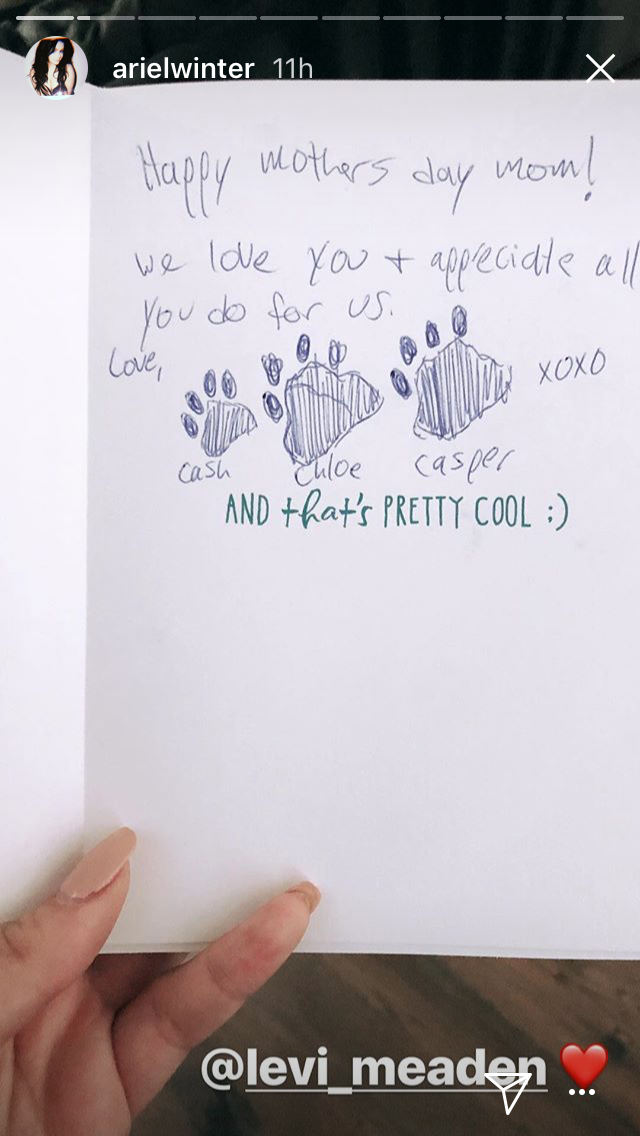 arielwinter 11h
Happy mothers day mom!
we love you + appreciate all
you do for us.
Love,
xoxo
Cash Chloe Casper
AND that's PRETTY COOL :)
@levi_meaden ❤️